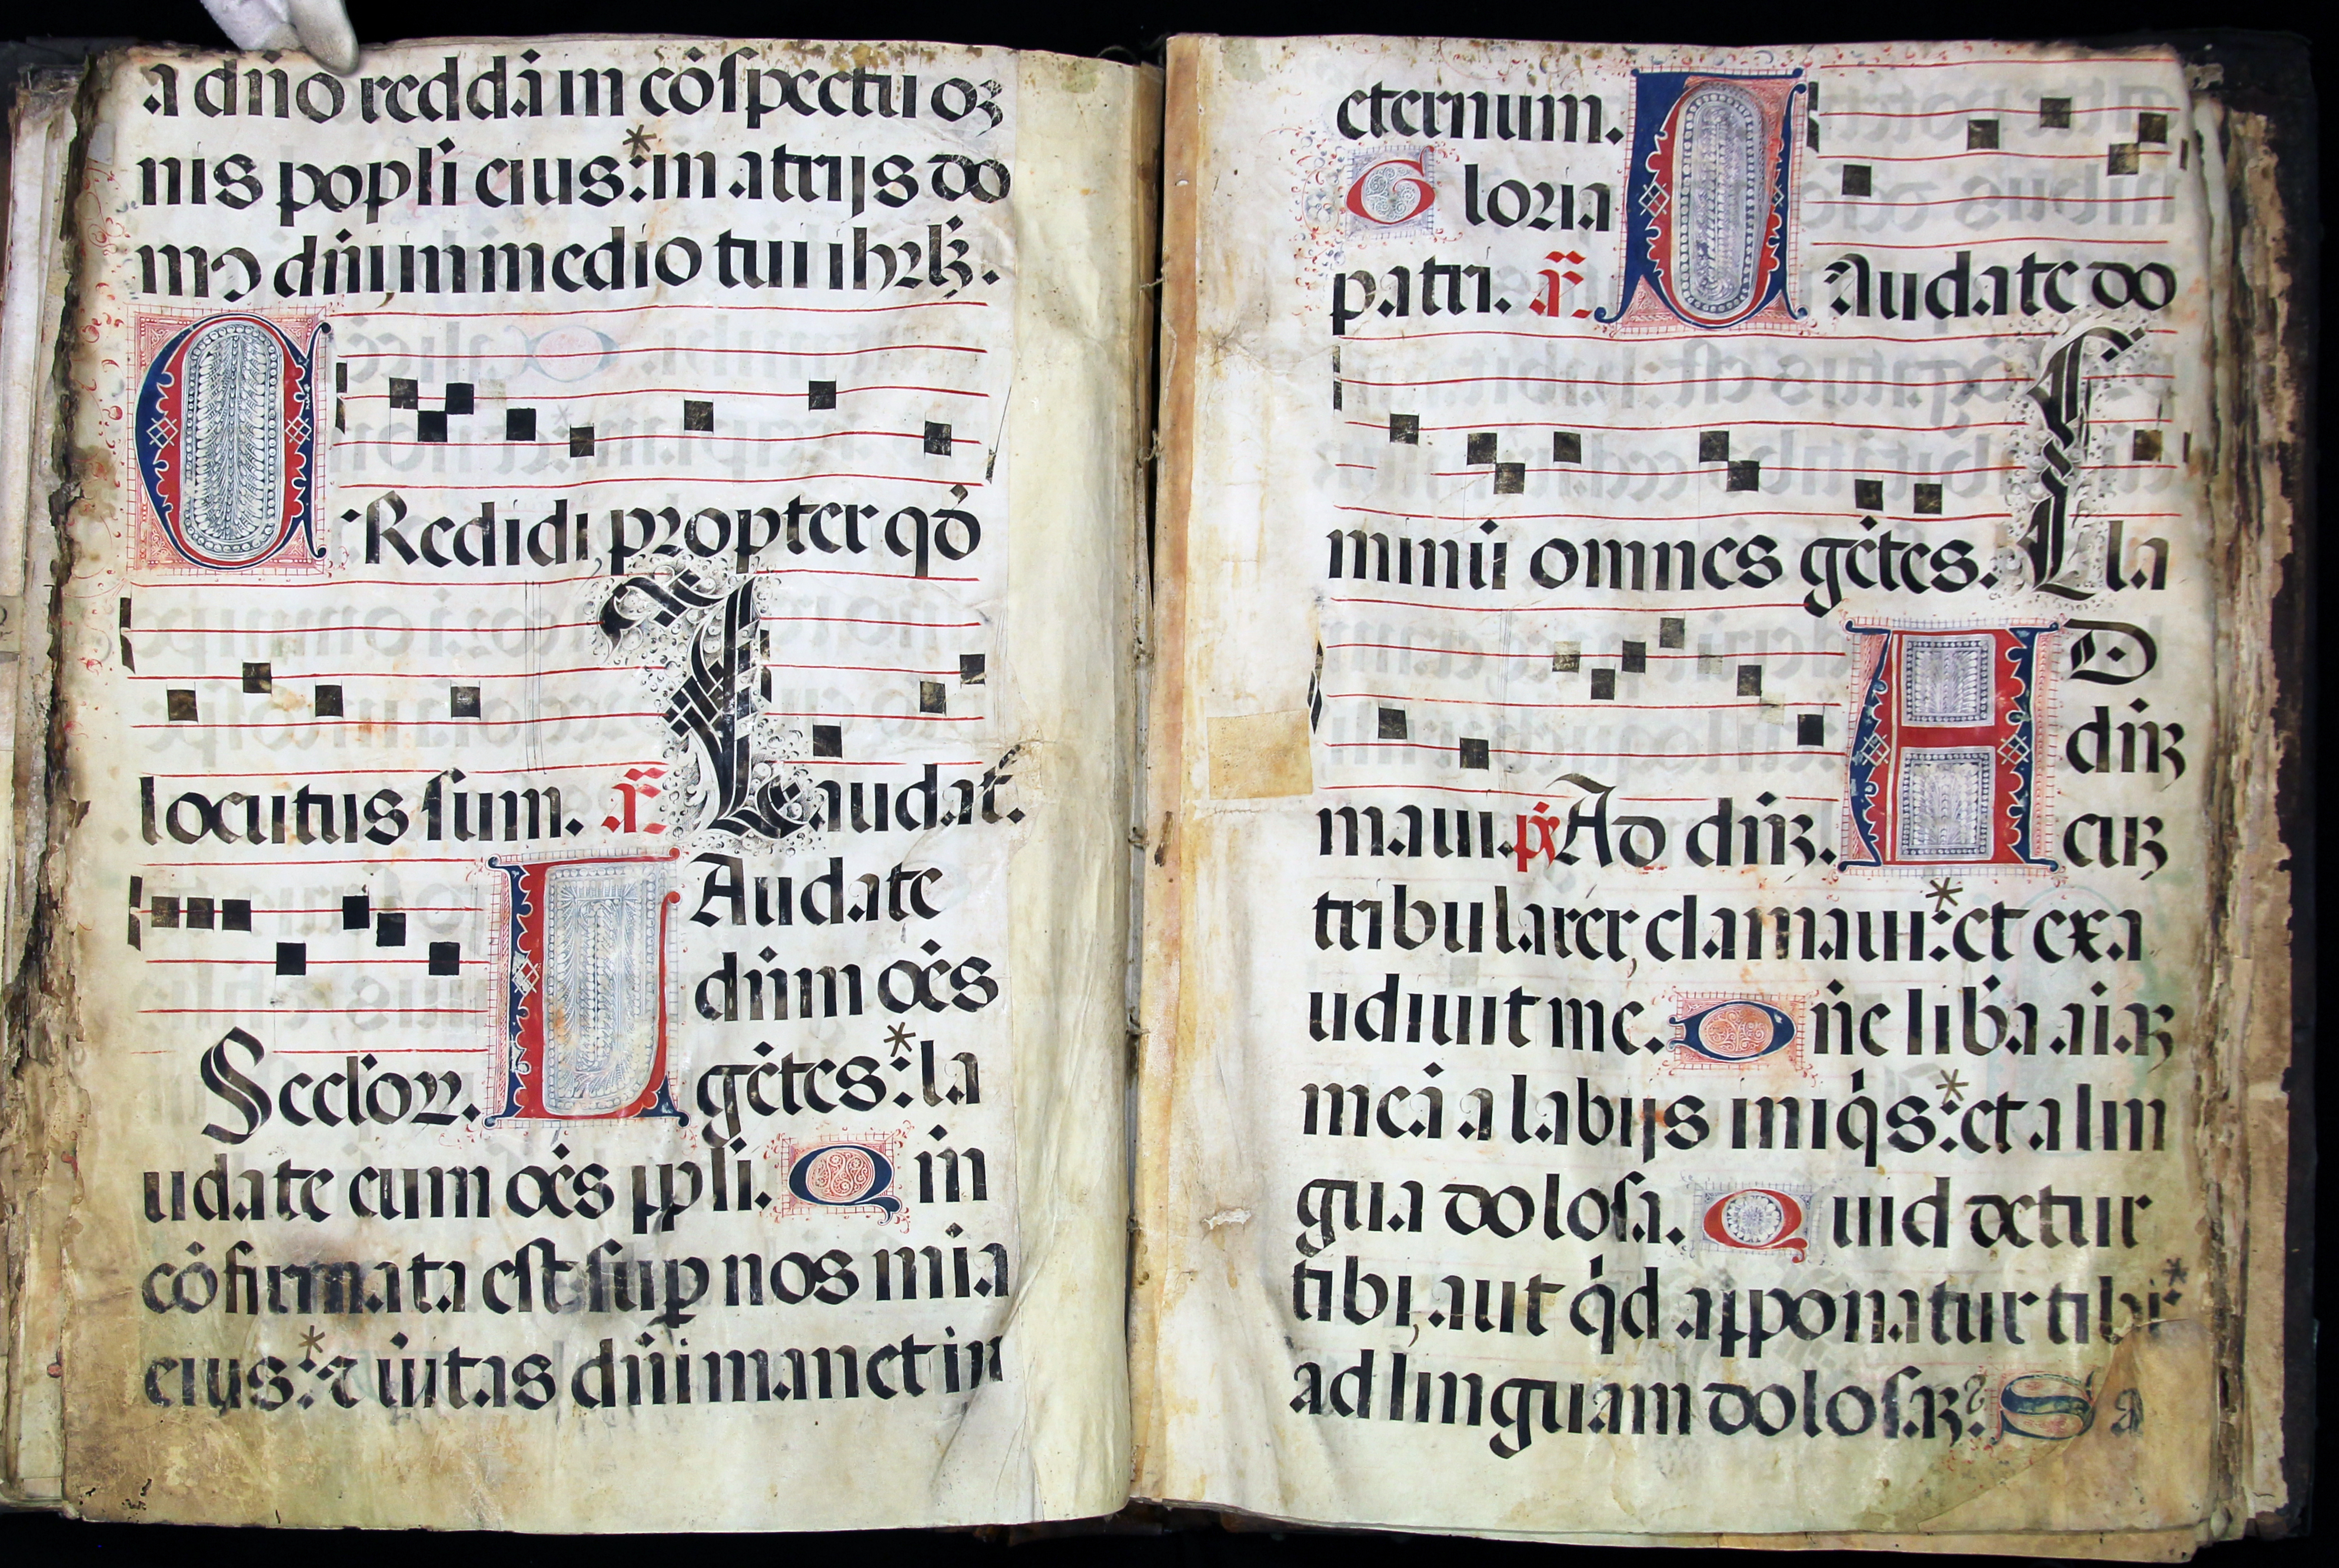 a dño reddá in cóſpectu oʒ
nis popľi eius:*in atrijs do
mꝰ dñi,in medio tui ihrľʒ.
C Redidi, propter qđ
locutus ſum. añ Laudat.
Secĺoꝝ. L Audate
dñm oẽs
gẽtes:*la
udate eum oẽs ppľi. Q m
cõfirmata eſt ſuꝑ nos mĩa
eius:*⁊ ũitas dñi manet in
eternum.
G loria
patri. añ L Audate do
minũ omnes gẽtes. Cla
maui. pš Ad dñʒ. A D
dñʒ
cuʒ
tribularer, clamaui:*et exa
udiuit me. D ñe liƀa aĩaʒ
meã a labijs iniq̇s:*et a lin
gua doloſa. Q uid detur
tibi, aut q̇d apponatur tibi*
ad linguam doloſaʒ? S a